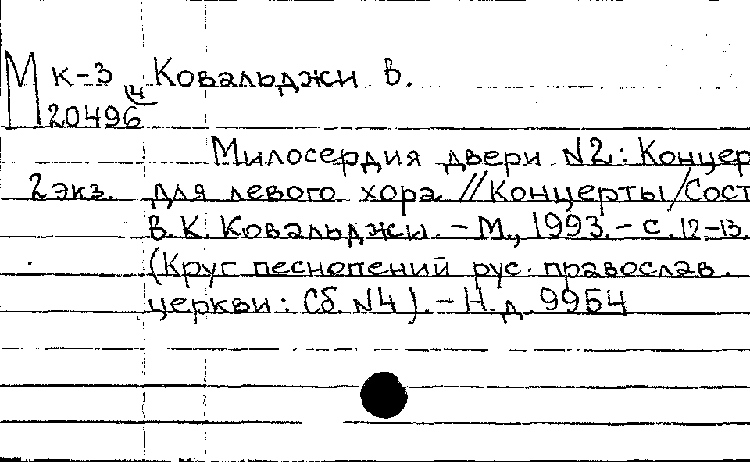 М к-3 Ковальджи В.
20496 (4
Милосердия двери №2: Концер
2 экз. для левого хора // Концерты / Сост
В.К. Ковальджи. - М., 1993. - с. 12-13.
(Круг песнопений рус. православ.
церкви: Сб. №4). - Н.д. 9954